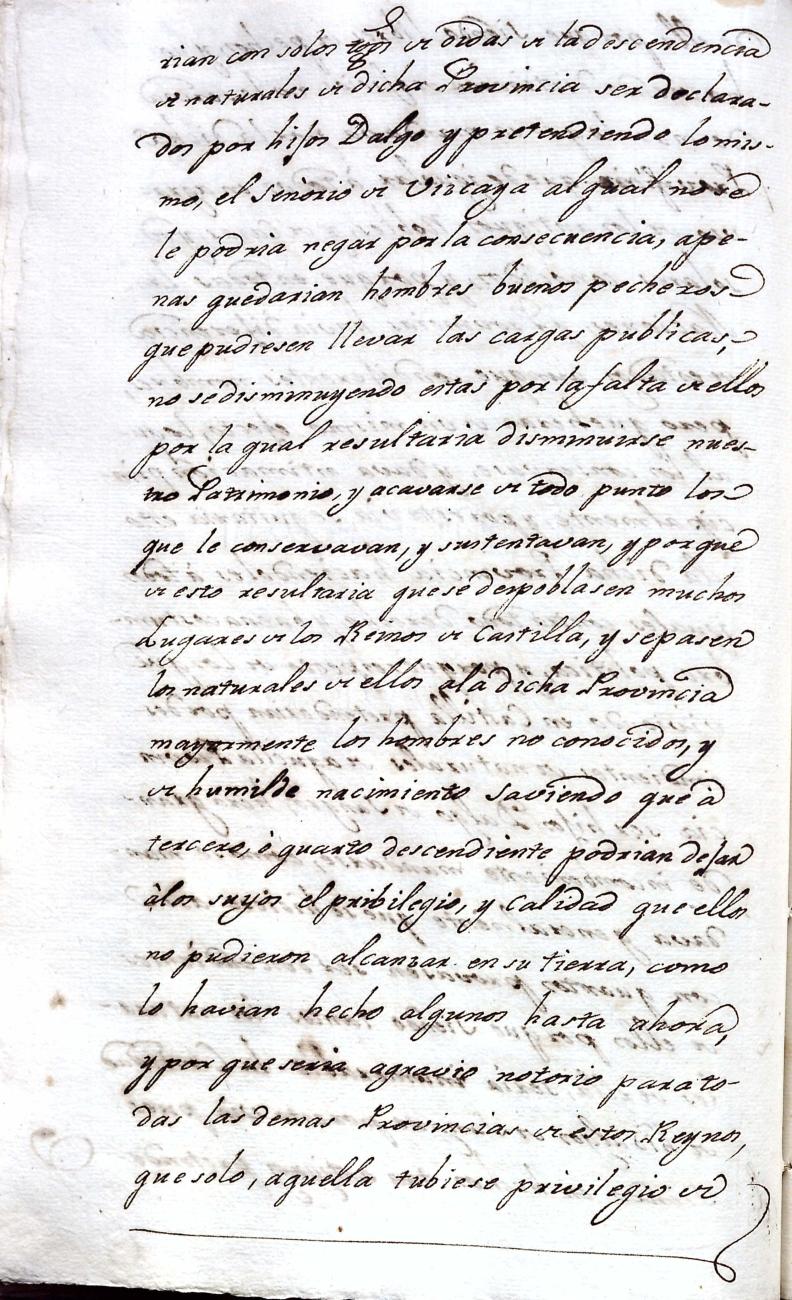 rian con solos tgos de oidas de la descendencia
de naturales de dicha Provincia ser declara-
dos por hijos Dalgo y pretendiendo lo mis-
mo, el señorio de Vizcaya al qual no se
le podria negar por la consecuencia, ape-
nas quedarian hombres buenos pecheros
que pudiesen llevar las cargas publicas,
no se disminuyendo estas por la falta de ellos
por la qual resultaria disminuirse nues-
tro Patrimonio, y acavarse de todo punto los
que le conservavan, y sustentavan, y porque
de esto resultaria que se despoblasen muchos
Lugares de los Reinos de Castilla, y se pasen
los naturales de ellos à la dicha Provincia
mayormente los hombres no conocidos, y
de humilde nacimiento saviendo que à
tercero, ò quarto descendiente podrian dejar
à los suyos el pribilegio, y Calidad que ellos
no pudieron alcanzar en su tierra, como
lo havian hecho algunos hasta ahora,
y por que seria agravio notorio para to-
das las demas Provincias de estos Reynos,
que solo, aquella tubiese privilegio de